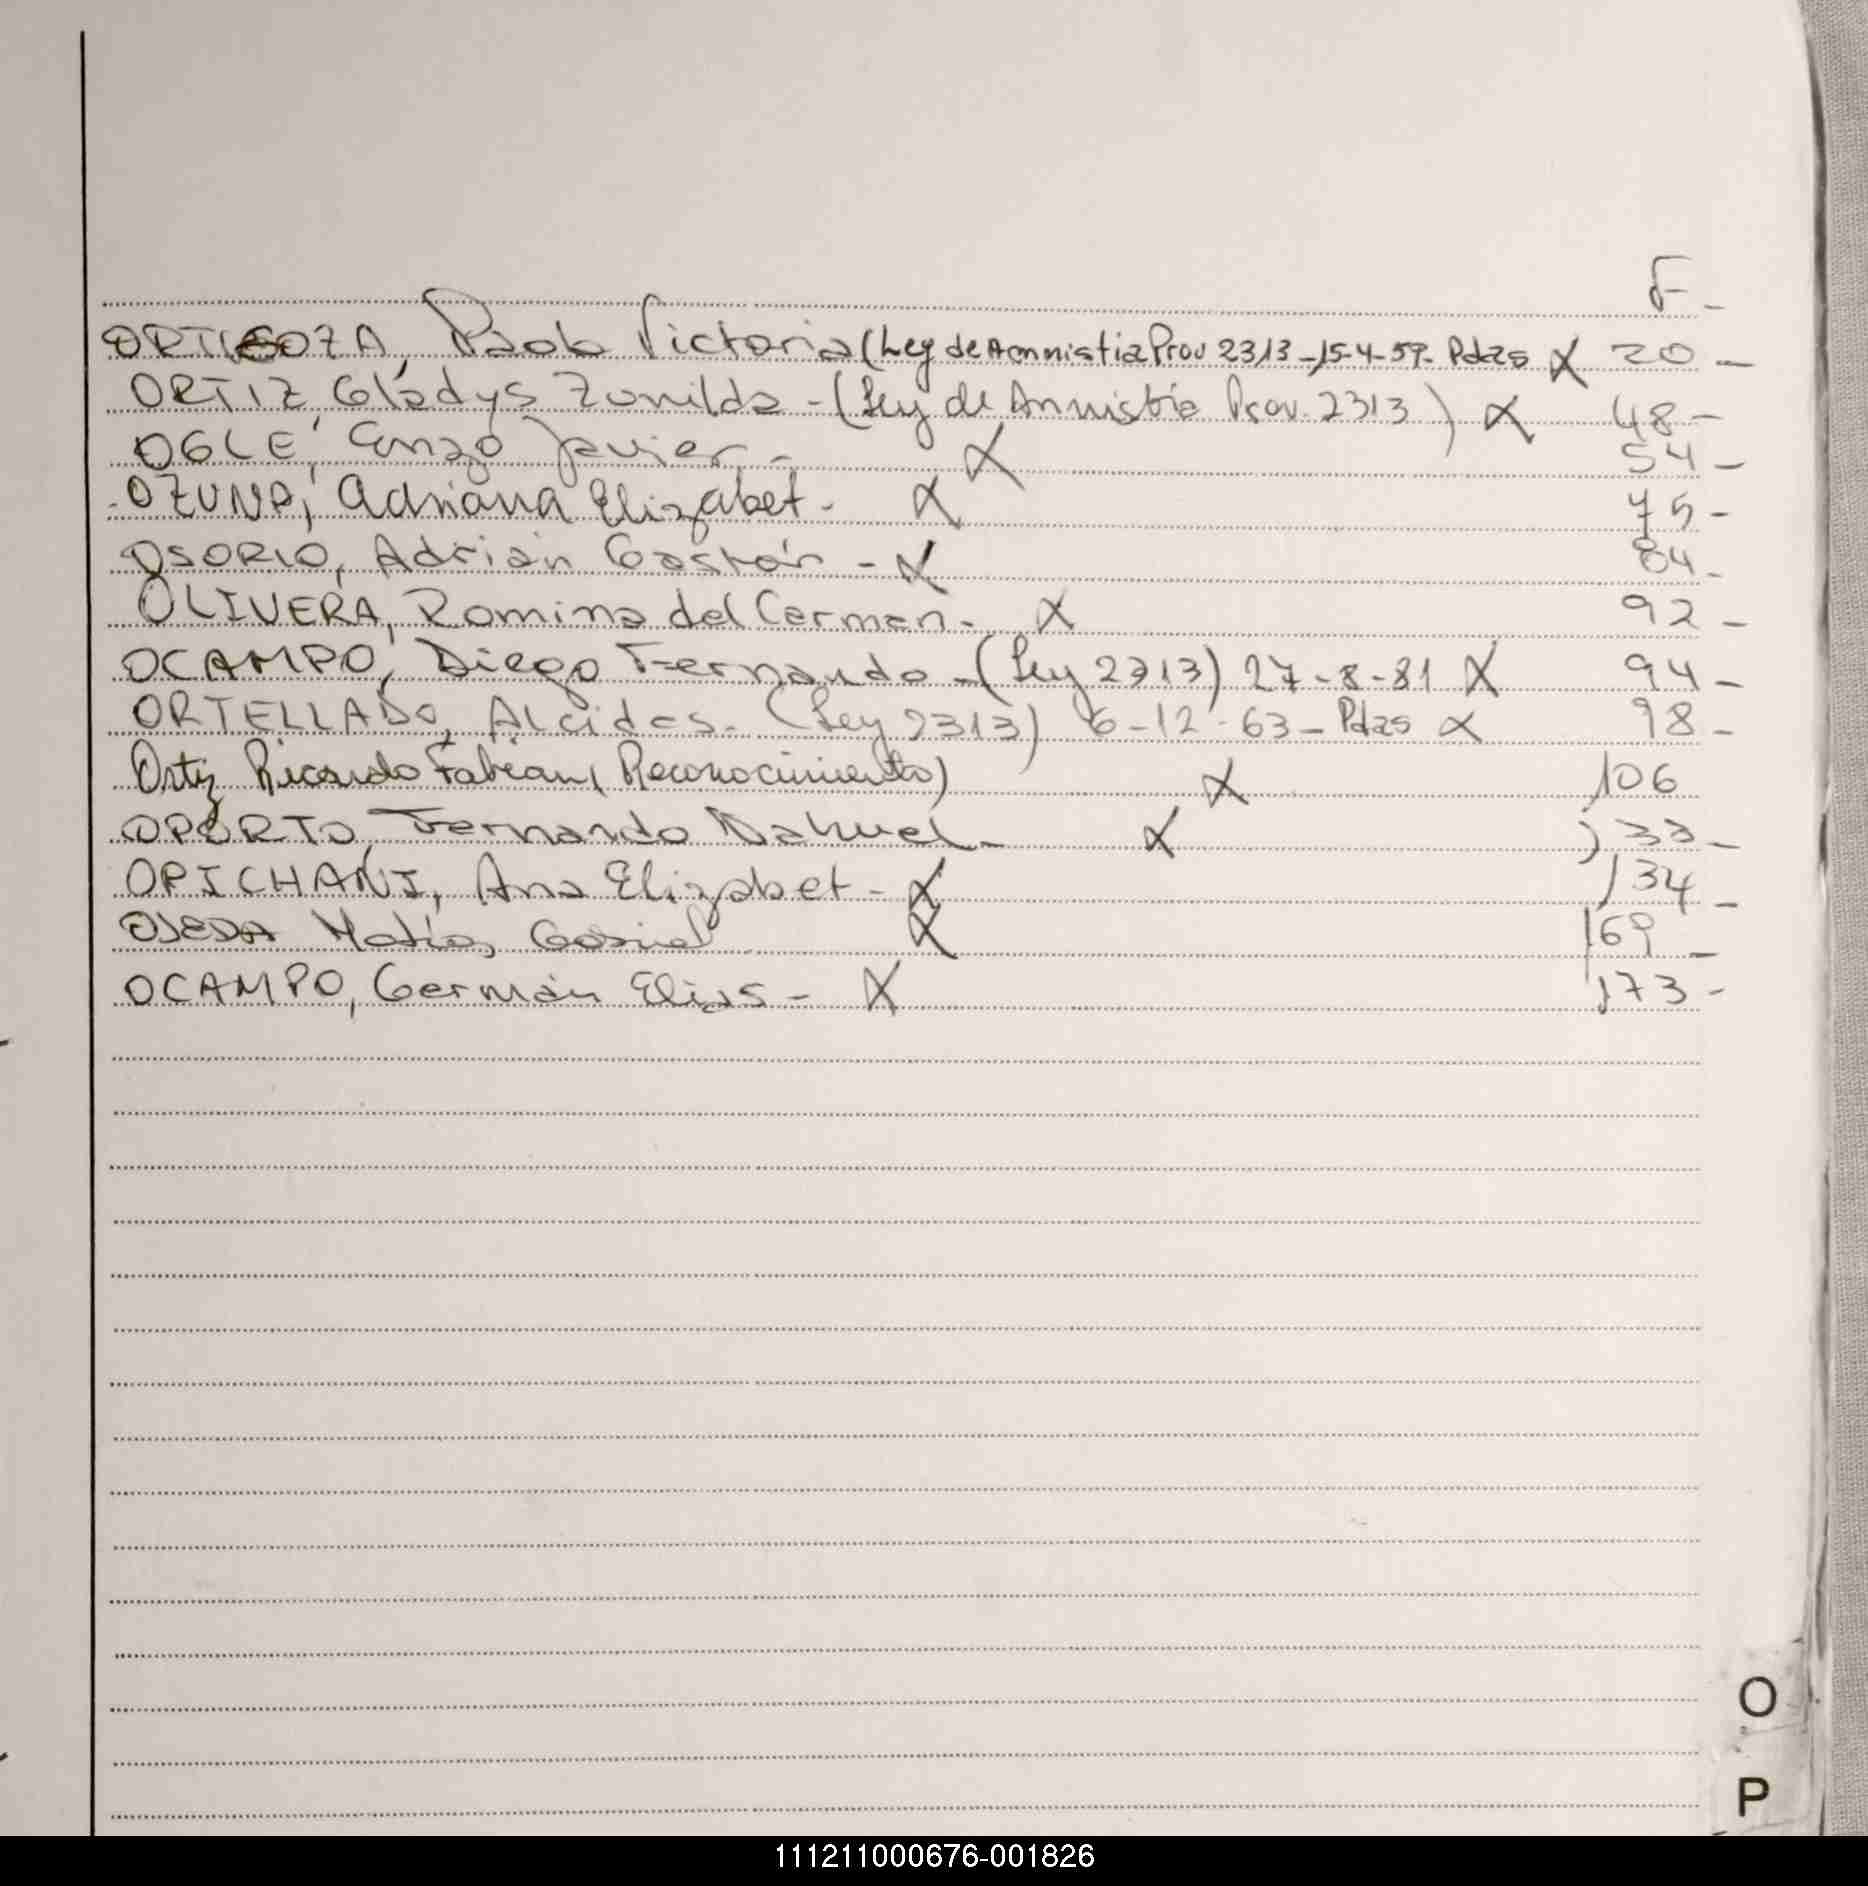 F-
ORTIGOZA, Paola Victoria (Ley de Amnistia Prov 2313-15-4-59- Pdas X 20 -
ORTIZ, Gladys Zunilda - (Ley de Amnistia Prov. 2313) X 48 -
OGLE, Enzo Javier - X 54 -
OZUNA, Adriana Elizabet - X 75 -
OSORIO, Adrián Gastón - X 84 -
OLIVERA, Romina del Carmen - X 92 -
OCAMPO, Diego Fernando - (Ley 2313) 27-8-81 X 94 -
ORTELLADO, Alcides - (Ley 2313) 6-12-63 - Pdas X 98 -
Ortiz Ricardo Fabian (Reconocimiento) X 106
OPORTO, Fernando Nahuel - X 133 -
OPICHANI, Ana Elizabet - X 134 -
OJEDA Matías Gabriel X 169 -
OCAMPO, Germán Elias - X 173 -
O
P
111211000676-001826